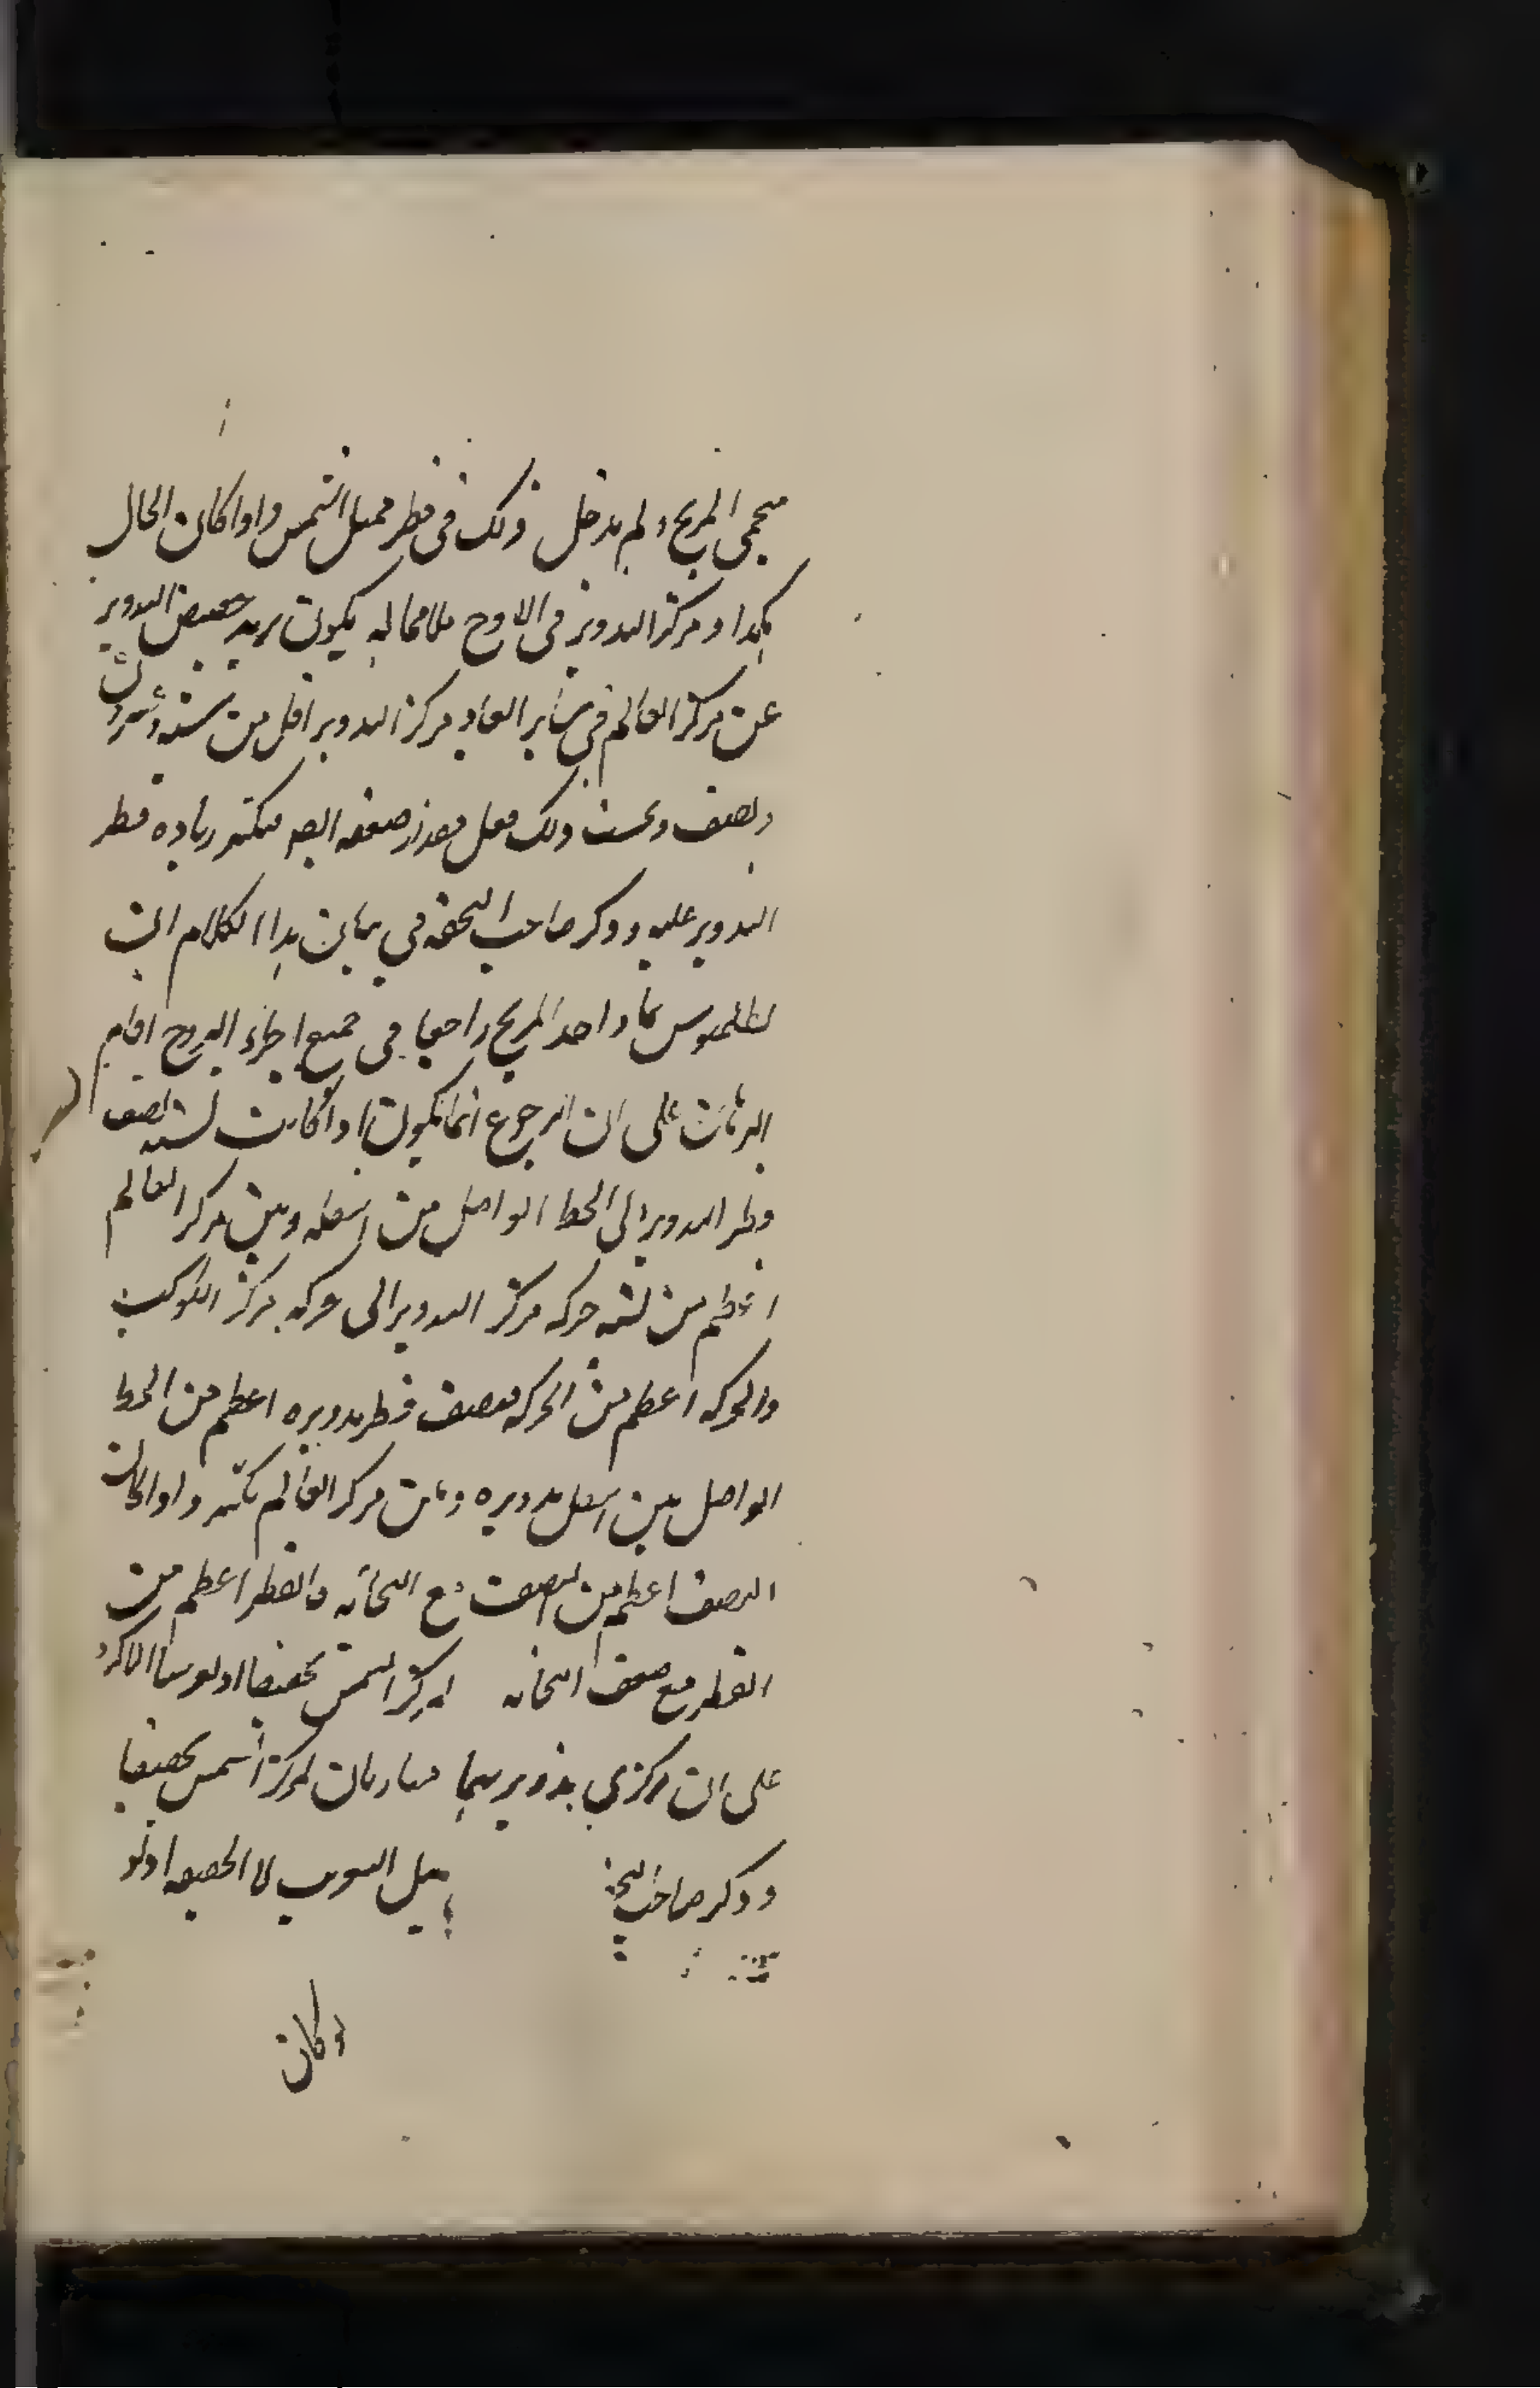 متممى المريخ ولم يدخل ذلك فى قطر ممثل الشمس واذا كان الحال
هكذا ومركز التدوير فى الاوج فلا محاله يكون بعد حضيض التدوير
عن مركز العالم فى ساير ابعاد مركز التدوير اقل من ستة وثلثون
ونصف وبحسب ذلك فعلى مقدار صعفه ايضا فيكثر زياده قطر
التدوير عليه وذكر صاحب التحفه فى بيان هذا الكلام ان
بطلميوس لما وجد المريخ راجعا فى جميع اجزاء البروج اقام
البرهان على ان الرجوع انما يكون اذا كانت نسبه نصف
قطر التدوير الى الخط الواصل من اسفله وبين مركز العالم
اعظم من نسبه حركه مركز التدوير الى حركه مركز الكوكب
والحركه اعظم من الحركه فنصف قطر تدويره اعظم من الخط
الواصل بين اسفل تدويره وبين مركز العالم بكثير واذا كان
النصف اعظم من النصف مع الثخانه فالقطر اعظم من
القطر مع ضعف الثخانه لمركز الشمس تحقيقا اذ لو سا الاكرد
على ان مركزى تدويريهما مساويان لمركز الشمس تحقيقا
وذكر صاحب التحفه على التقريب لا الحقيقه اذ لو
لو كان